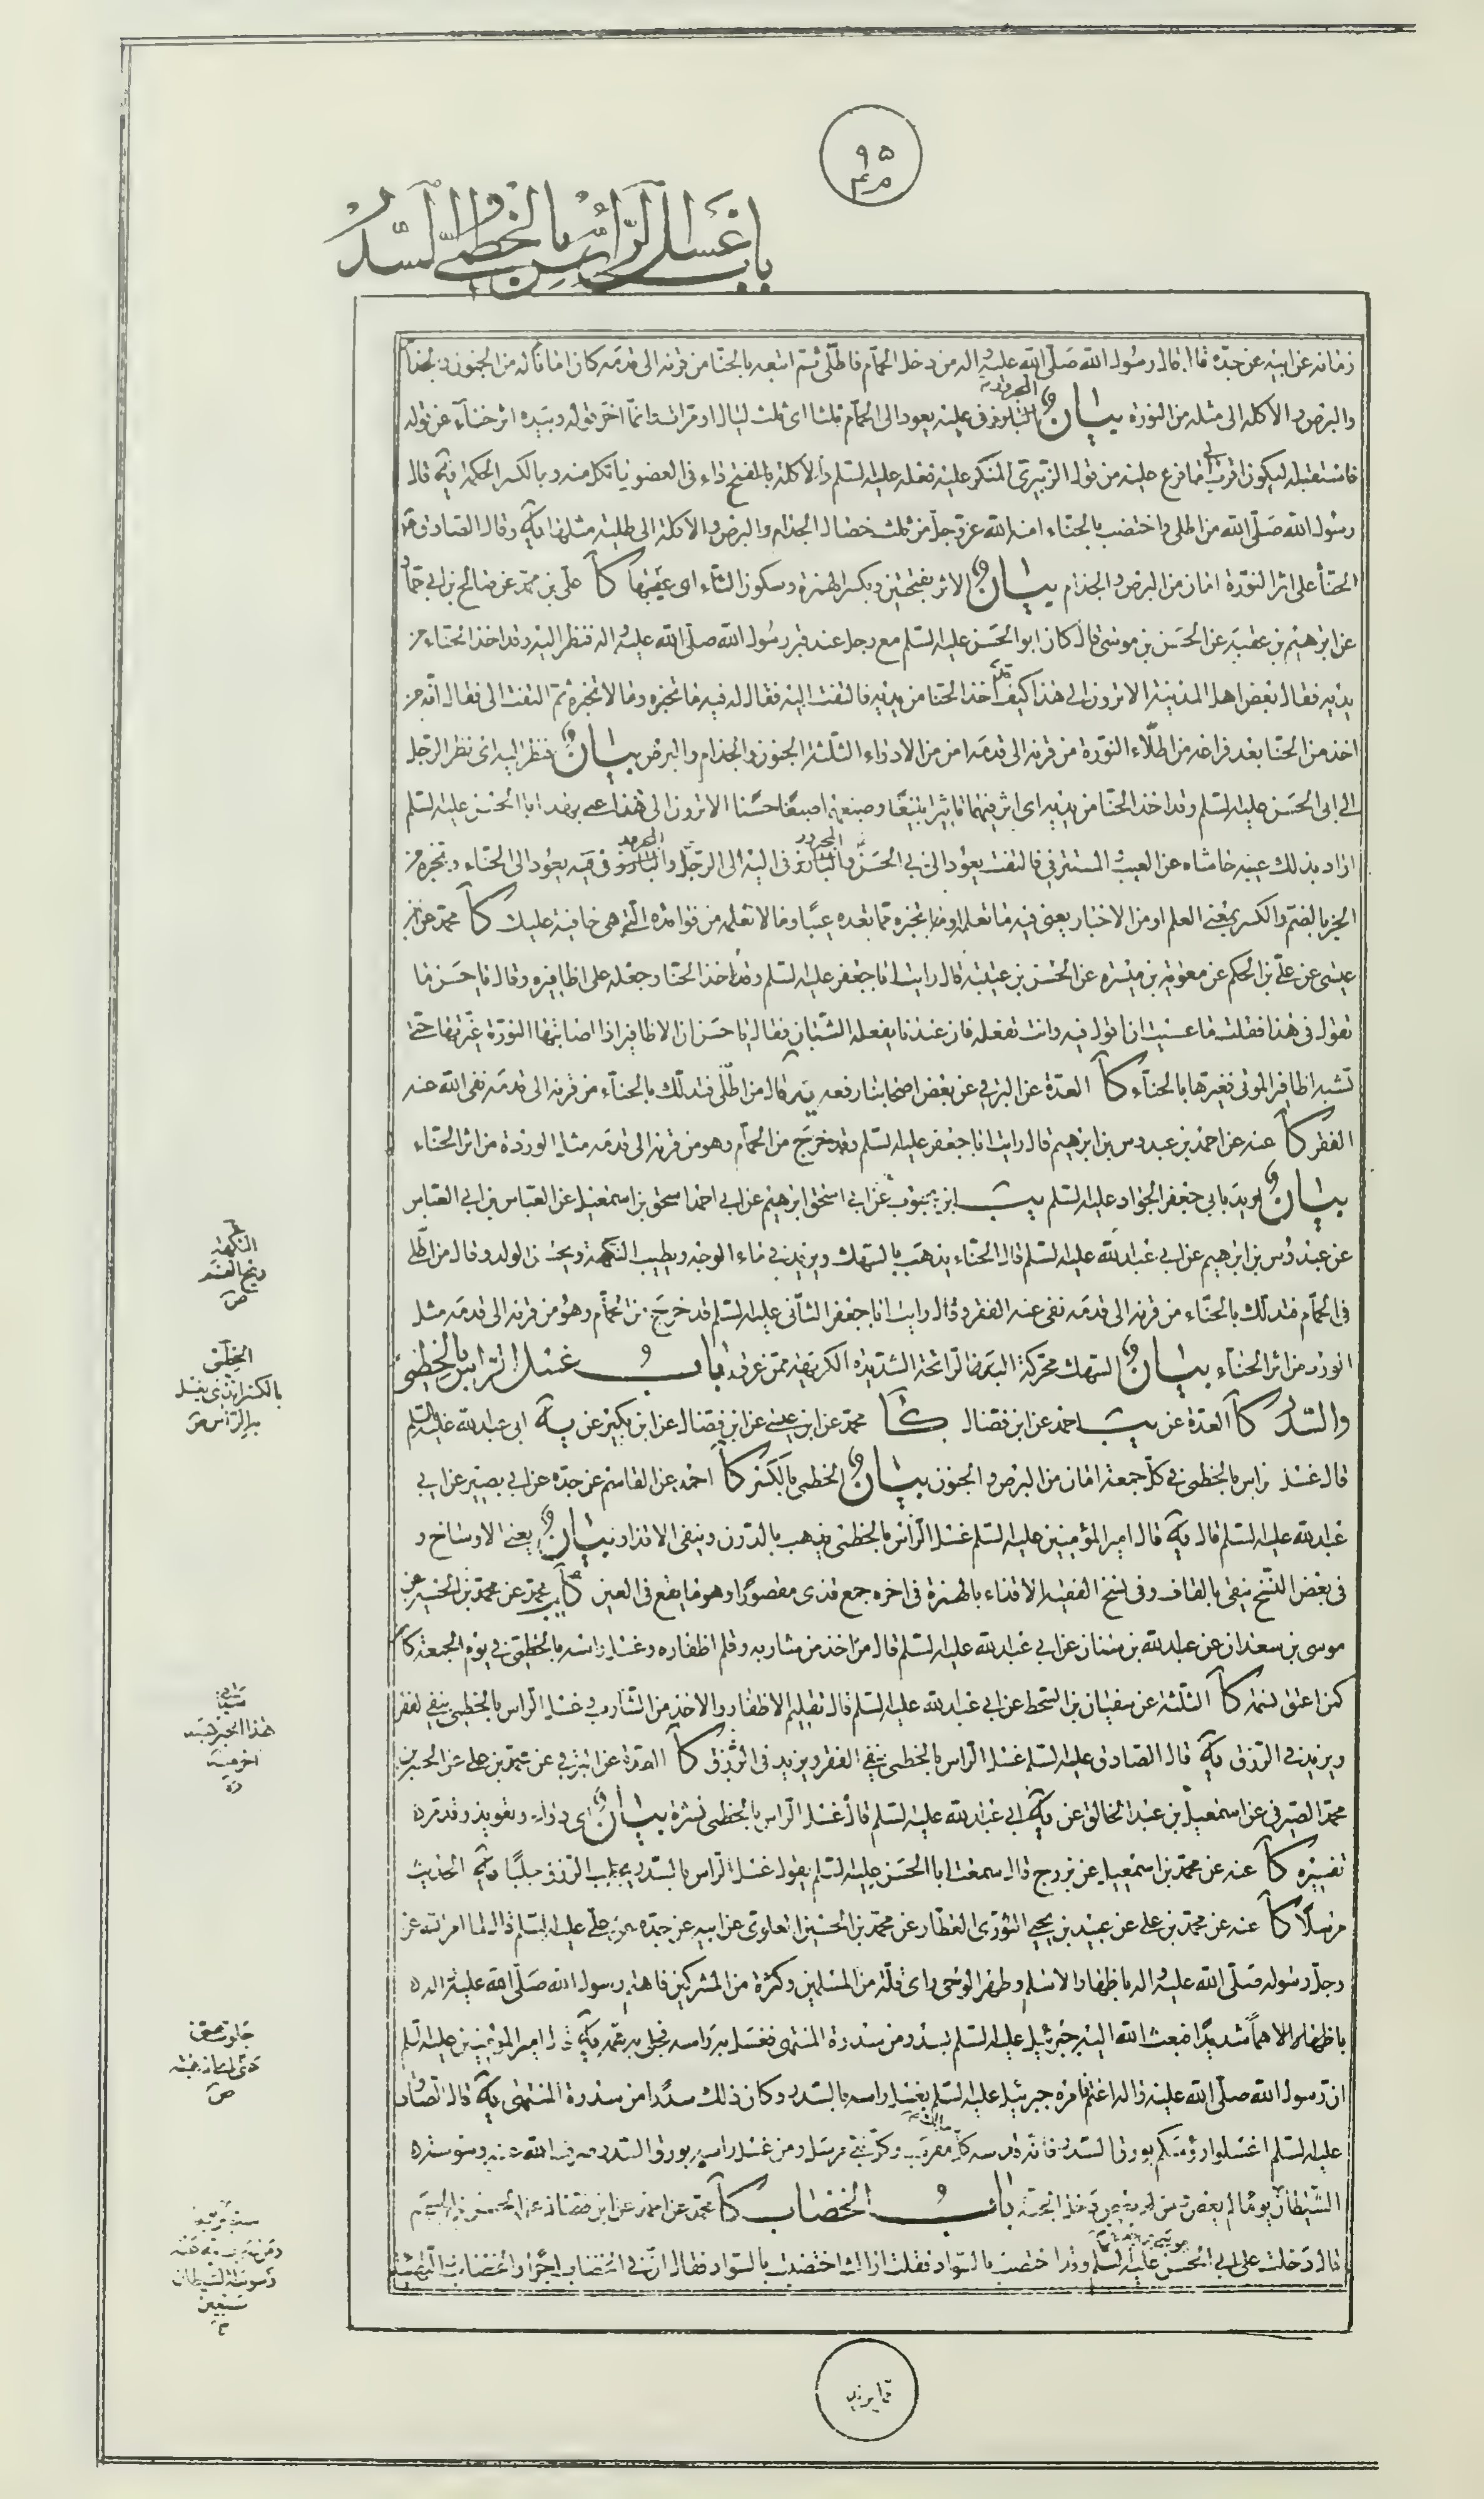 ٩٥
باب غسل الرأس بالخطمي والسدر
عن ابيه عن جده قال قال رسول الله صلى الله عليه واله من دخل الحمام فاطلى ثم اتبعه بالحنا من قرنه الى قدمه كان امانا له من الجنون والجذام
والبرص والاكلة الى مثله من النورة بيان المجرور في عليه يعود الى الحمام ثلثا اى ثلث ليال او مرات انما اخر قوله وبيده اثر حناء عن قوله
فاستقبله ليكون اقرب الى ما فرع عليه من قول الزبيرى المنكر عليه فعله عليه السلم والاكلة بالفتح داء فى العضو ياتكل منه وبالكسر الحكة فيه قال
رسول الله صلى الله من اطلى واختضب بالحناء امنه الله عز وجل من ثلث خصال الجذام والبرص والاكلة الى طلية مثلها يه وقال الصادق ع
الحناء على اثر النورة امان من البرص والجذام بيان الاثر بفتحتين وبكسر الهمزة وسكون الثاء اى عقبها كا على بن محمد عن صالح بن ابي حماد
عن ابرهيم بن عقبة عن الحسن بن موسى قال كان ابو الحسن عليه السلم مع رجل عند قبر رسول الله صلى الله عليه واله فنظر اليه وقد اخذ الحناء من
يديه فقال بعض اهل المدينة الا ترون الى هذا كيف اخذ الحنا من يديه فالتفت اليه فقال له فيه ما تخبره وما لا تخبره ثم التفت الى فقال انه من
اخذ من الحنا بعد فراغه من اطلاء النورة من قرنه الى قدمه امن من الادواء الثلثة الجنون والجذام والبرص بيان فنظر اليه اى نظر الرجل
الى ابى الحسن عليه السلم وقد اخذ الحنا من يديه اى اثر فيهما تاثيرا بليغا وصبغهما صبغا حسنا الا ترون الى هذا يعنى به ابا الحسن عليه السلم
اراد بذلك عيبه حاشاه عن العيب والمستتر فى فالتفت يعود الى ابي الحسن والمجرور فى اليه الى الرجل والمجرور فى فيه يعود الى الحناء وتخبره من
الخبر بالضم والكسر بمعنى العلم او من الاخبار يعنى فيه ما تعلمه وما تخبره مما تعده عيبا وما لا تعلمه من فوائده التى هى خافية عليك كا محمد عن ابن
عيسى عن على بن الحكم عن معوية بن ميسرة عن الحسن بن عتيبة قال رايت ابا جعفر عليه السلم وقد اخذ الحنا وجعله على اظافيره وقال يا حسن ما
تقول فى هذا فقلت ما عسيت ان اقول فيه وانت تفعله فان عندنا يفعله الشبان فقال يا حسن ان الاظافير اذا اصابتها النورة غيرتها حتى
تشبه اظافير الموتى فغيرها بالحناء كا العدة عن البرقي عن بعض اصحابنا رفعه يه قال من اطلى فتدلك بالحناء من قرنه الى قدمه نفى الله عنه
الفقر كا عنه عن احمد بن عبدوس بن ابرهيم قال رايت ابا جعفر عليه السلم وقد خرج من الحمام وهو من قرنه الى قدمه مثل الوردة من اثر الحناء
بيان اريد بابي جعفر الجواد عليه السلم يب ابن محبوب عن ابي اسحق ابرهيم عن ابي احمد اسحق بن اسمعيل عن العباس بن ابي العباس
عن عبدوس بن ابرهيم عن ابي عبد الله عليه السلم قال الحناء يذهب بالسهك ويزيد في ماء الوجه ويطيب النكهة ويحسن الولد وقال من اطلى
فى الحمام فتدلك بالحناء من قرنه الى قدمه نفى عنه الفقر وقال رايت ابا جعفر الثانى عليه السلم قد خرج من الحمام وهو من قرنه الى قدمه مثل
الورد من اثر الحناء بيان السهك محركة الرائحة الشديدة الكريهة ممن عرق باب غسل الراس بالخطمى
والسدر كا العدة عن يب احمد عن ابن فضال كا محمد عن ابن عيسى عن ابن فضال عن ابن بكير عن يه ابى عبد الله عليه السلم
قال غسل الراس بالخطمى في كل جمعة امان من البرص والجنون بيان الخطمى بالكسر كا احمد عن القاسم عن جده عن ابي بصير عن ابي
عبد الله عليه السلم قال يه قال امير المؤمنين عليه السلم غسل الراس بالخطمى يذهب بالدرن وينفى الاقذار بيان يعنى الاوساخ و
فى بعض النسخ ينقى بالقاف وفى نسخ الفقيه الاقذاء بالهمزة فى اخره جمع قذى مقصورا وهو ما يقع فى العين كا يب محمد عن محمد بن الحسين عن
موسى بن سعدان عن عبد الله بن سنان عن ابي عبد الله عليه السلم قال من اخذ من شاربه وقلم اظفاره وغسل راسه بالخطمى في يوم الجمعة كان
كمن اعتق نسمة كا الثلثة عن سفيان بن السمط عن ابي عبد الله عليه السلم قال تقليم الاظفار والاخذ من الشارب وغسل الراس بالخطمى ينفى الفقر
ويزيد في الرزق يه قال الصادق عليه السلم غسل الراس بالخطمى ينفى الفقر ويزيد فى الرزق كا العدة عن البرقي عن محمد بن على عن الحسن بن
محمد الصيرفى عن اسمعيل بن عبد الخالق عن يه ابي عبد الله عليه السلم قال غسل الراس بالخطمى نشرة بيان اى دواء وتعويذ وقد مر
تفسيره كا عنه عن محمد بن اسمعيل عن بزرج قال سمعت ابا الحسن عليه السلم يقول غسل الراس بالسدر يجلب الرزق جلبا يه الحديث
مرسلا كا عنه عن محمد بن على عن عبيد بن يحيى الثورى العطار عن محمد بن الحسين العلوى عن ابيه عن جده عن على عليه السلم قال لما امر الله عز
وجل رسوله صلى الله عليه واله باظهار الاسلام وظهر الوحى راى قلة من المسلمين وكثرة من المشركين فاهتم رسول الله صلى الله عليه واله
هما شديدا فبعث الله اليه جبرئيل عليه السلم بسدر من سدرة المنتهى فغسل به راسه فجلى به همه يه قال امير المؤمنين عليه السلم
ان رسول الله صلى الله عليه واله اغتم فامره جبرئيل عليه السلم بغسل راسه بالسدر وكان ذلك سدرا من سدرة المنتهى يه قال الصادق
عليه السلم اغسلوا رؤسكم بورق السدر فانه قدسه كل ملك مقرب وكل نبي مرسل ومن غسل راسه بورق السدر صرف الله عنه وسوسة
الشيطان يوما لم يعص ومن لم يعص دخل الجنة باب الخضاب كا محمد عن احمد عن ابن فضال عن الحسن بن الجهم
قال دخلت على ابي الحسن عليه السلم وقد اختضب بالسواد فقلت اراك اختضبت بالسواد فقال ان في الخضاب اجرا والخضاب والتهيئة
النكهة
ريح الفم
ص
الخطمى
بالكسر الذى يغسل
به الراس ص
سياتى
هذا الخبر
مما يزيد